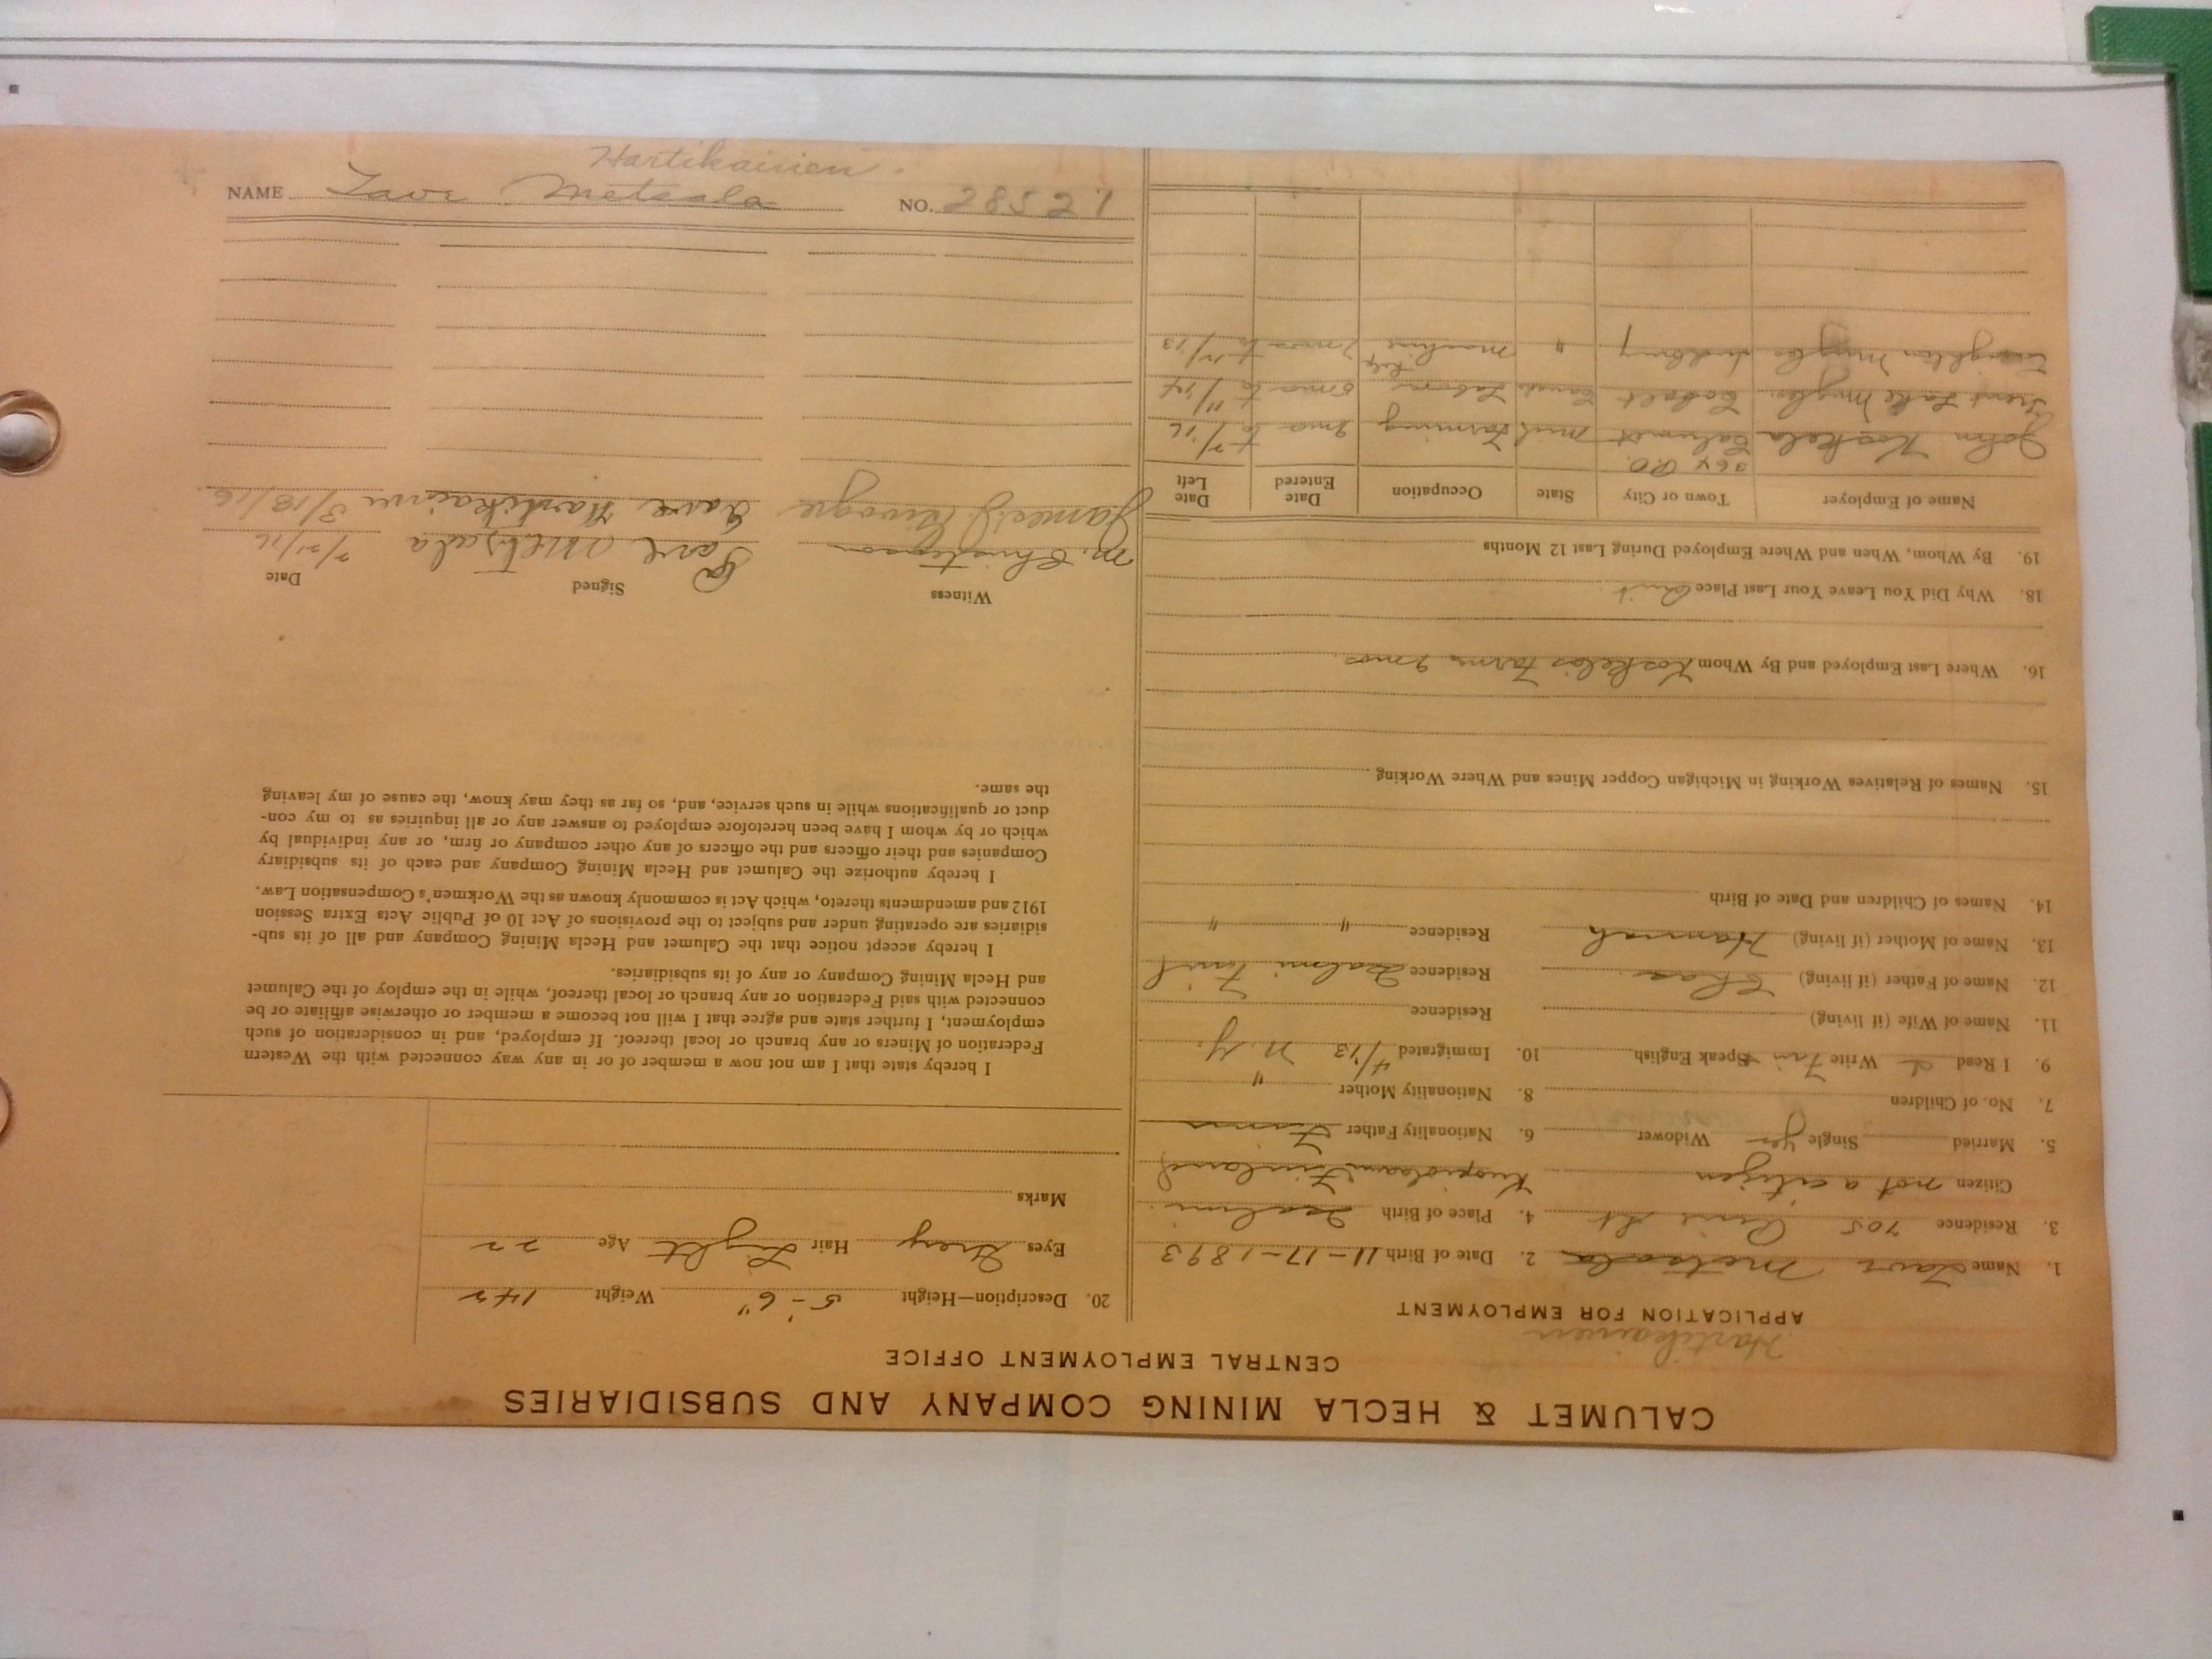 CALUMET & HECLA MINING COMPANY AND SUBSIDIARIES
CENTRAL EMPLOYMENT OFFICE
Hartikainen
APPLICATION FOR EMPLOYMENT
1. Name Metsala 2. Date of Birth 11-17-1893
3. Residence 705 St 4. Place of Birth
Citizen not a citizen Finland
5. Married Single yes Widower 6. Nationality Father Finn
7. No. of Children 8. Nationality Mother "
9. I Read Write Finn Speak English 10. Immigrated 4/13 N. Y.
11. Name of Wife (if living) Residence
12. Name of Father (if living) Chas Residence
13. Name of Mother (if living) Hannah Residence " "
14. Names of Children and Date of Birth
15. Names of Relatives Working in Michigan Copper Mines and Where Working
16. Where Last Employed and By Whom Koskelas Farm
18. Why Did You Leave Your Last Place Quit
19. By Whom, When and Where Employed During Last 12 Months
Name of Employer Town or City State Occupation Date Entered Date Left
364 P.O.
John Koskela Calumet Mich Farming 7/16
Trent Lake Cobalt Canada Labor 11/14
Sudbury " machine
20. Description—Height 5-6" Weight 142
Eyes Grey Hair Light Age 22
Marks
I hereby state that I am not now a member of or in any way connected with the Western
Federation of Miners or any branch or local thereof. If employed, and in consideration of such
employment, I further state and agree that I will not become a member or otherwise affiliate or be
connected with said Federation or any branch or local thereof, while in the employ of the Calumet
and Hecla Mining Company or any of its subsidiaries.
I hereby accept notice that the Calumet and Hecla Mining Company and all of its sub-
sidiaries are operating under and subject to the provisions of Act 10 of Public Acts Extra Session
1912 and amendments thereto, which Act is commonly known as the Workmen's Compensation Law.
I hereby authorize the Calumet and Hecla Mining Company and each of its subsidiary
Companies and their officers and the officers of any other company or firm, or any individual by
which or by whom I have been heretofore employed to answer any or all inquiries as to my con-
duct or qualifications while in such service, and, so far as they may know, the cause of my leaving
the same.
Witness Signed Date
M. Christianson Metsala 7/21/16
James Hartikainen 3/18/16
Hartikainen
NAME Metsala NO. 28521